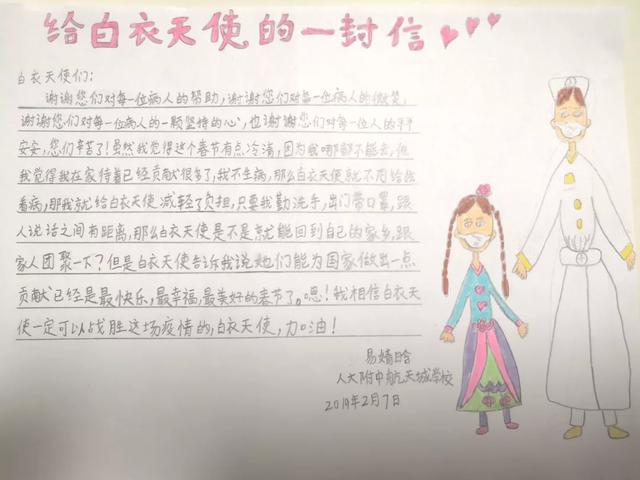 给白衣天使的一封信
白衣天使们:
谢谢您们对每一位病人的帮助,谢谢您们对每一位病人的微笑,
谢谢您们对每一位病人的一颗坚持的心,也谢谢您们对每一位人的平
安安,您们辛苦了!虽然我觉得这个春节有点冷清,因为我哪都不能去,但
我觉得我在家待着已经贡献很多了,我不生病,那么白衣天使就不用给我
看病,那我就给白衣天使减轻了负担,只要我勤洗手,出门带口罩,跟
人说话之间有距离,那么白衣天使是不是就能回到自己的家乡,跟
家人团聚一下?但是白衣天使告诉我说她们能为国家做出一点
贡献已经是最快乐,最幸福,最美好的春节了。嗯!我相信白衣天
使一定可以战胜这场疫情的,白衣天使,加油!
易婧晗
人大附中航天城学校
2019年2月7日